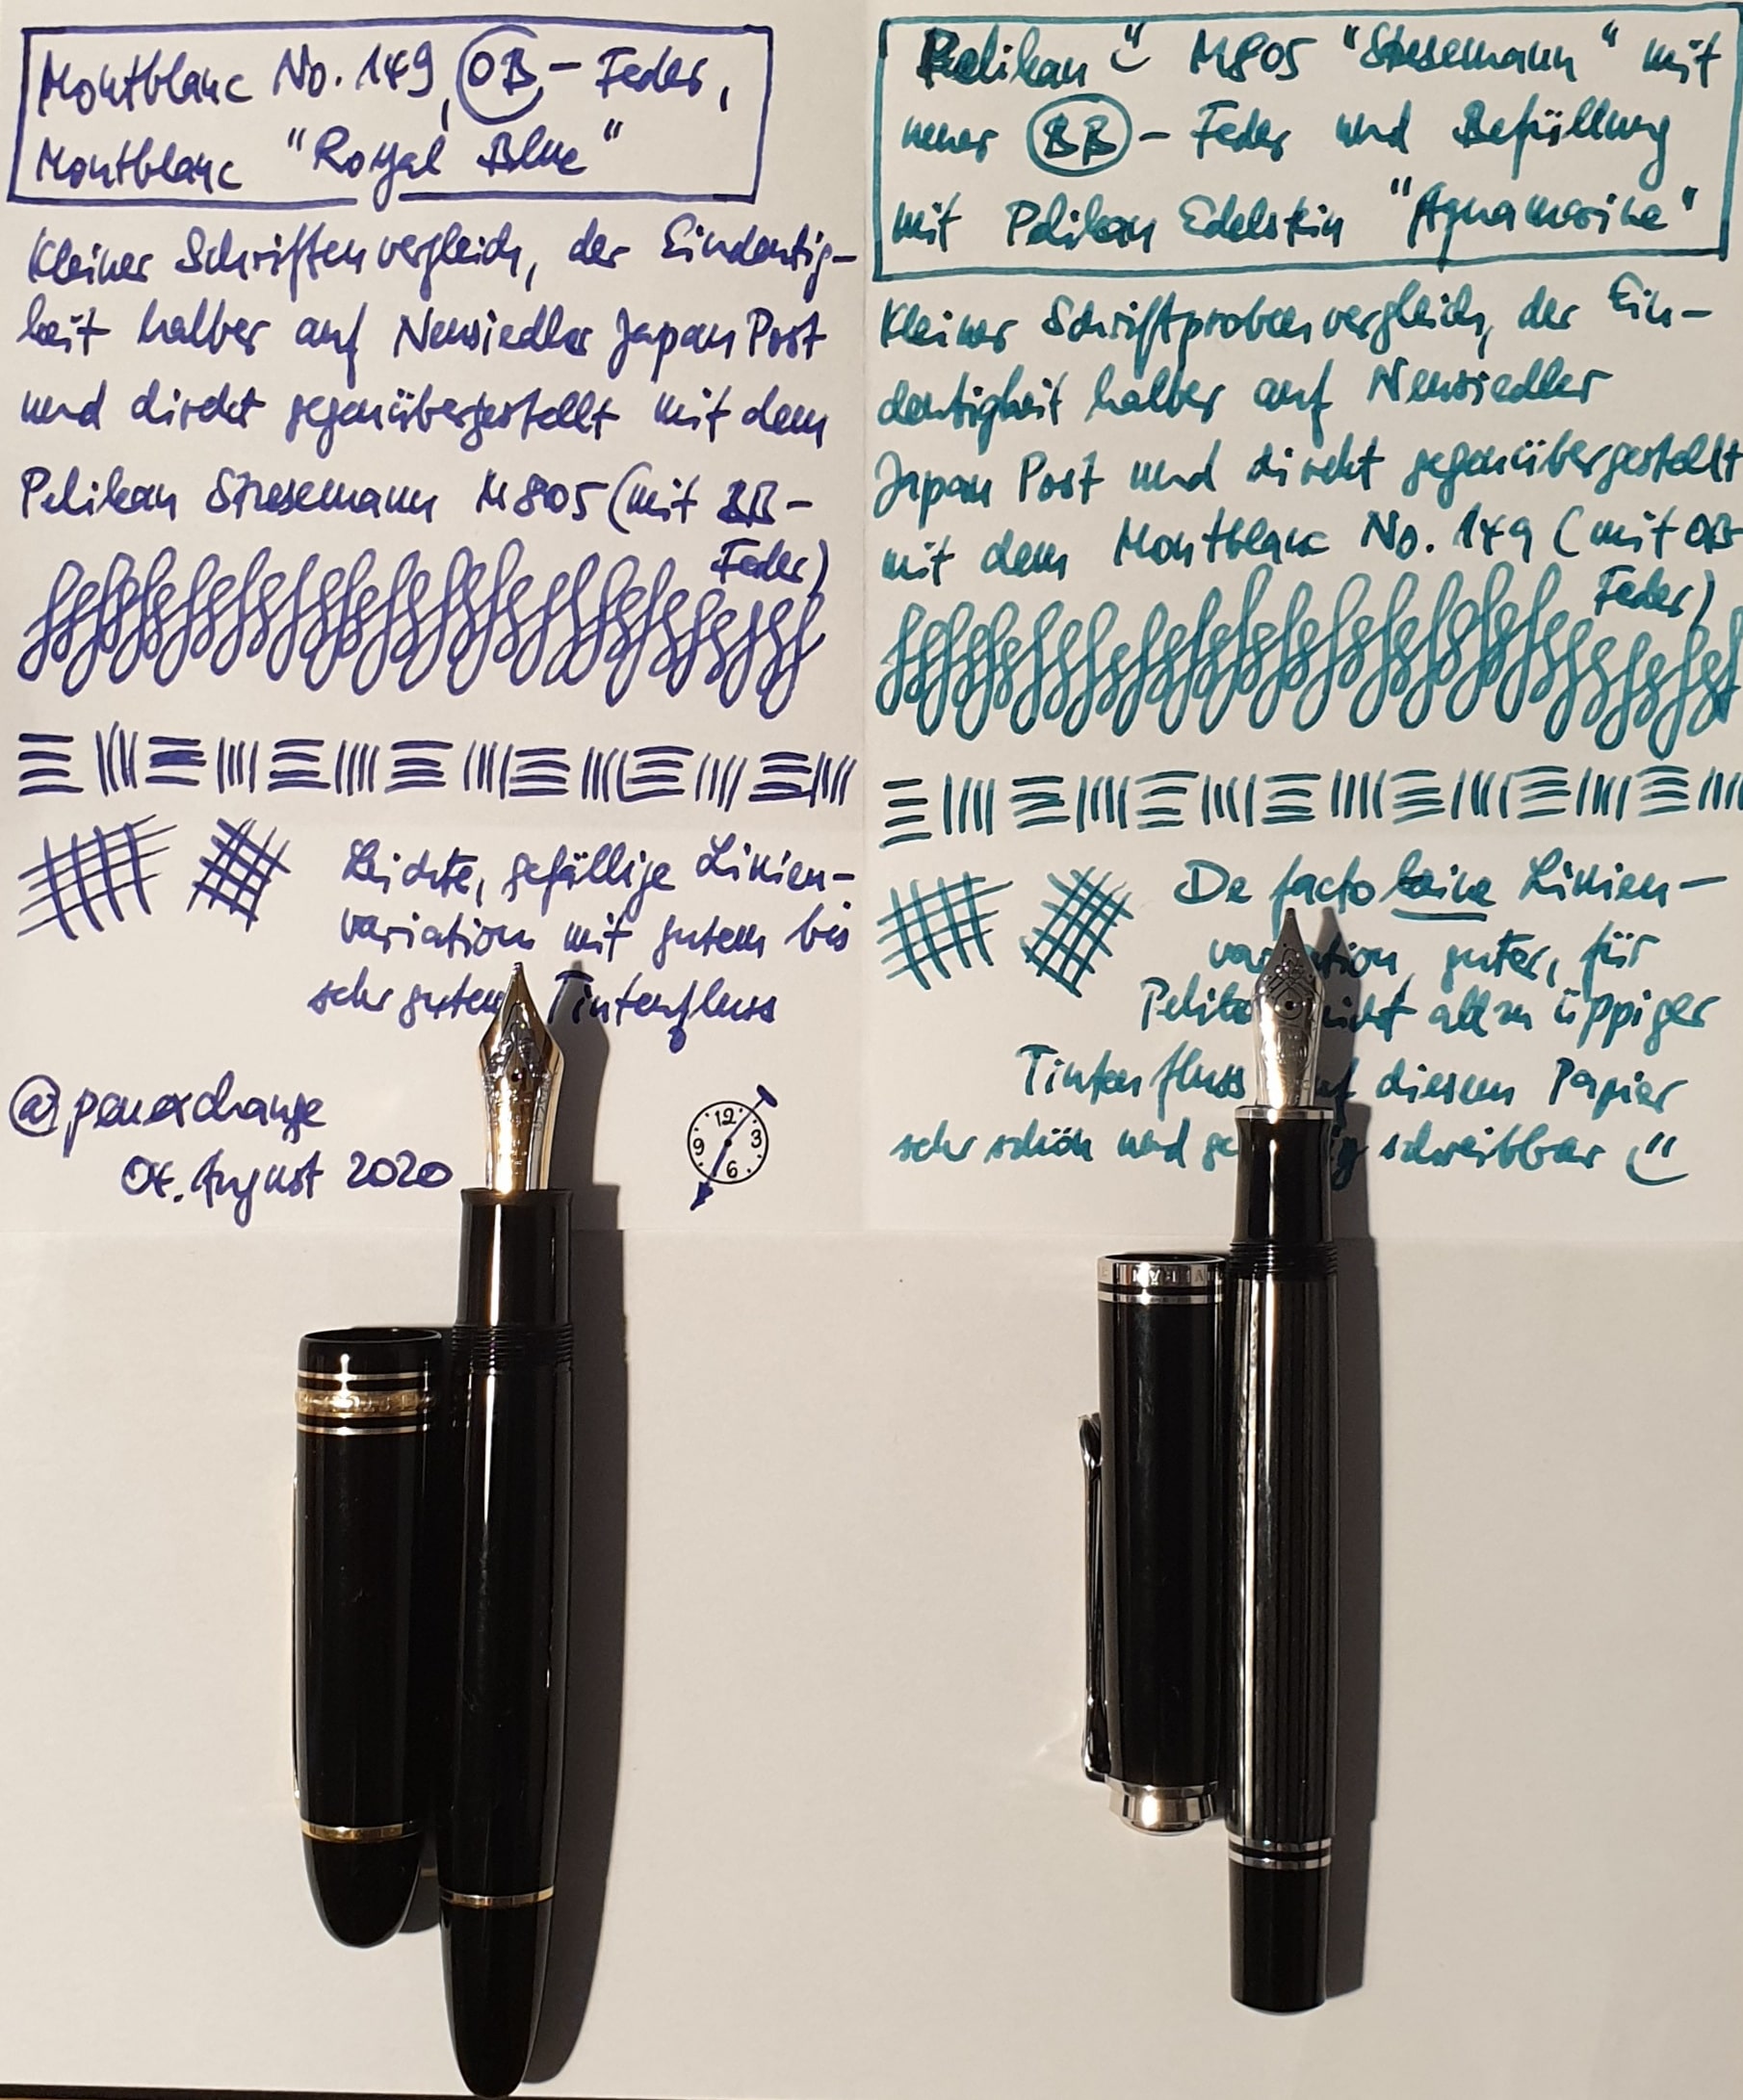 Montblanc No. 149, OB - Feder,
Montblanc "Royal Blue"
Kleiner Schriftenvergleich, der Eindeutig-
keit halber auf Neusiedler Japan Post
und direkt gegenübergestellt mit dem
Pelikan Stresemann M805 (mit BB-
Feder)
Leichte, gefällige Linien-
variation mit gutem bis
sehr gutem Tintenfluss
@penexchange
04. August 2020
12
9 3
6
Pelikan M805 "Stresemann" mit
neuer BB - Feder und Befüllung
mit Pelikan Edelstein "Aquamarine"
Kleiner Schriftprobenvergleich, der Ein-
deutigkeit halber auf Neusiedler
Japan Post und direkt gegenübergestellt
mit dem Montblanc No. 149 (mit OB-
Feder)
De facto keine Linien-
variation, guter, für
nicht allzu üppiger
Tintenfluss auf diesem Papier
sehr schön und schreibbar